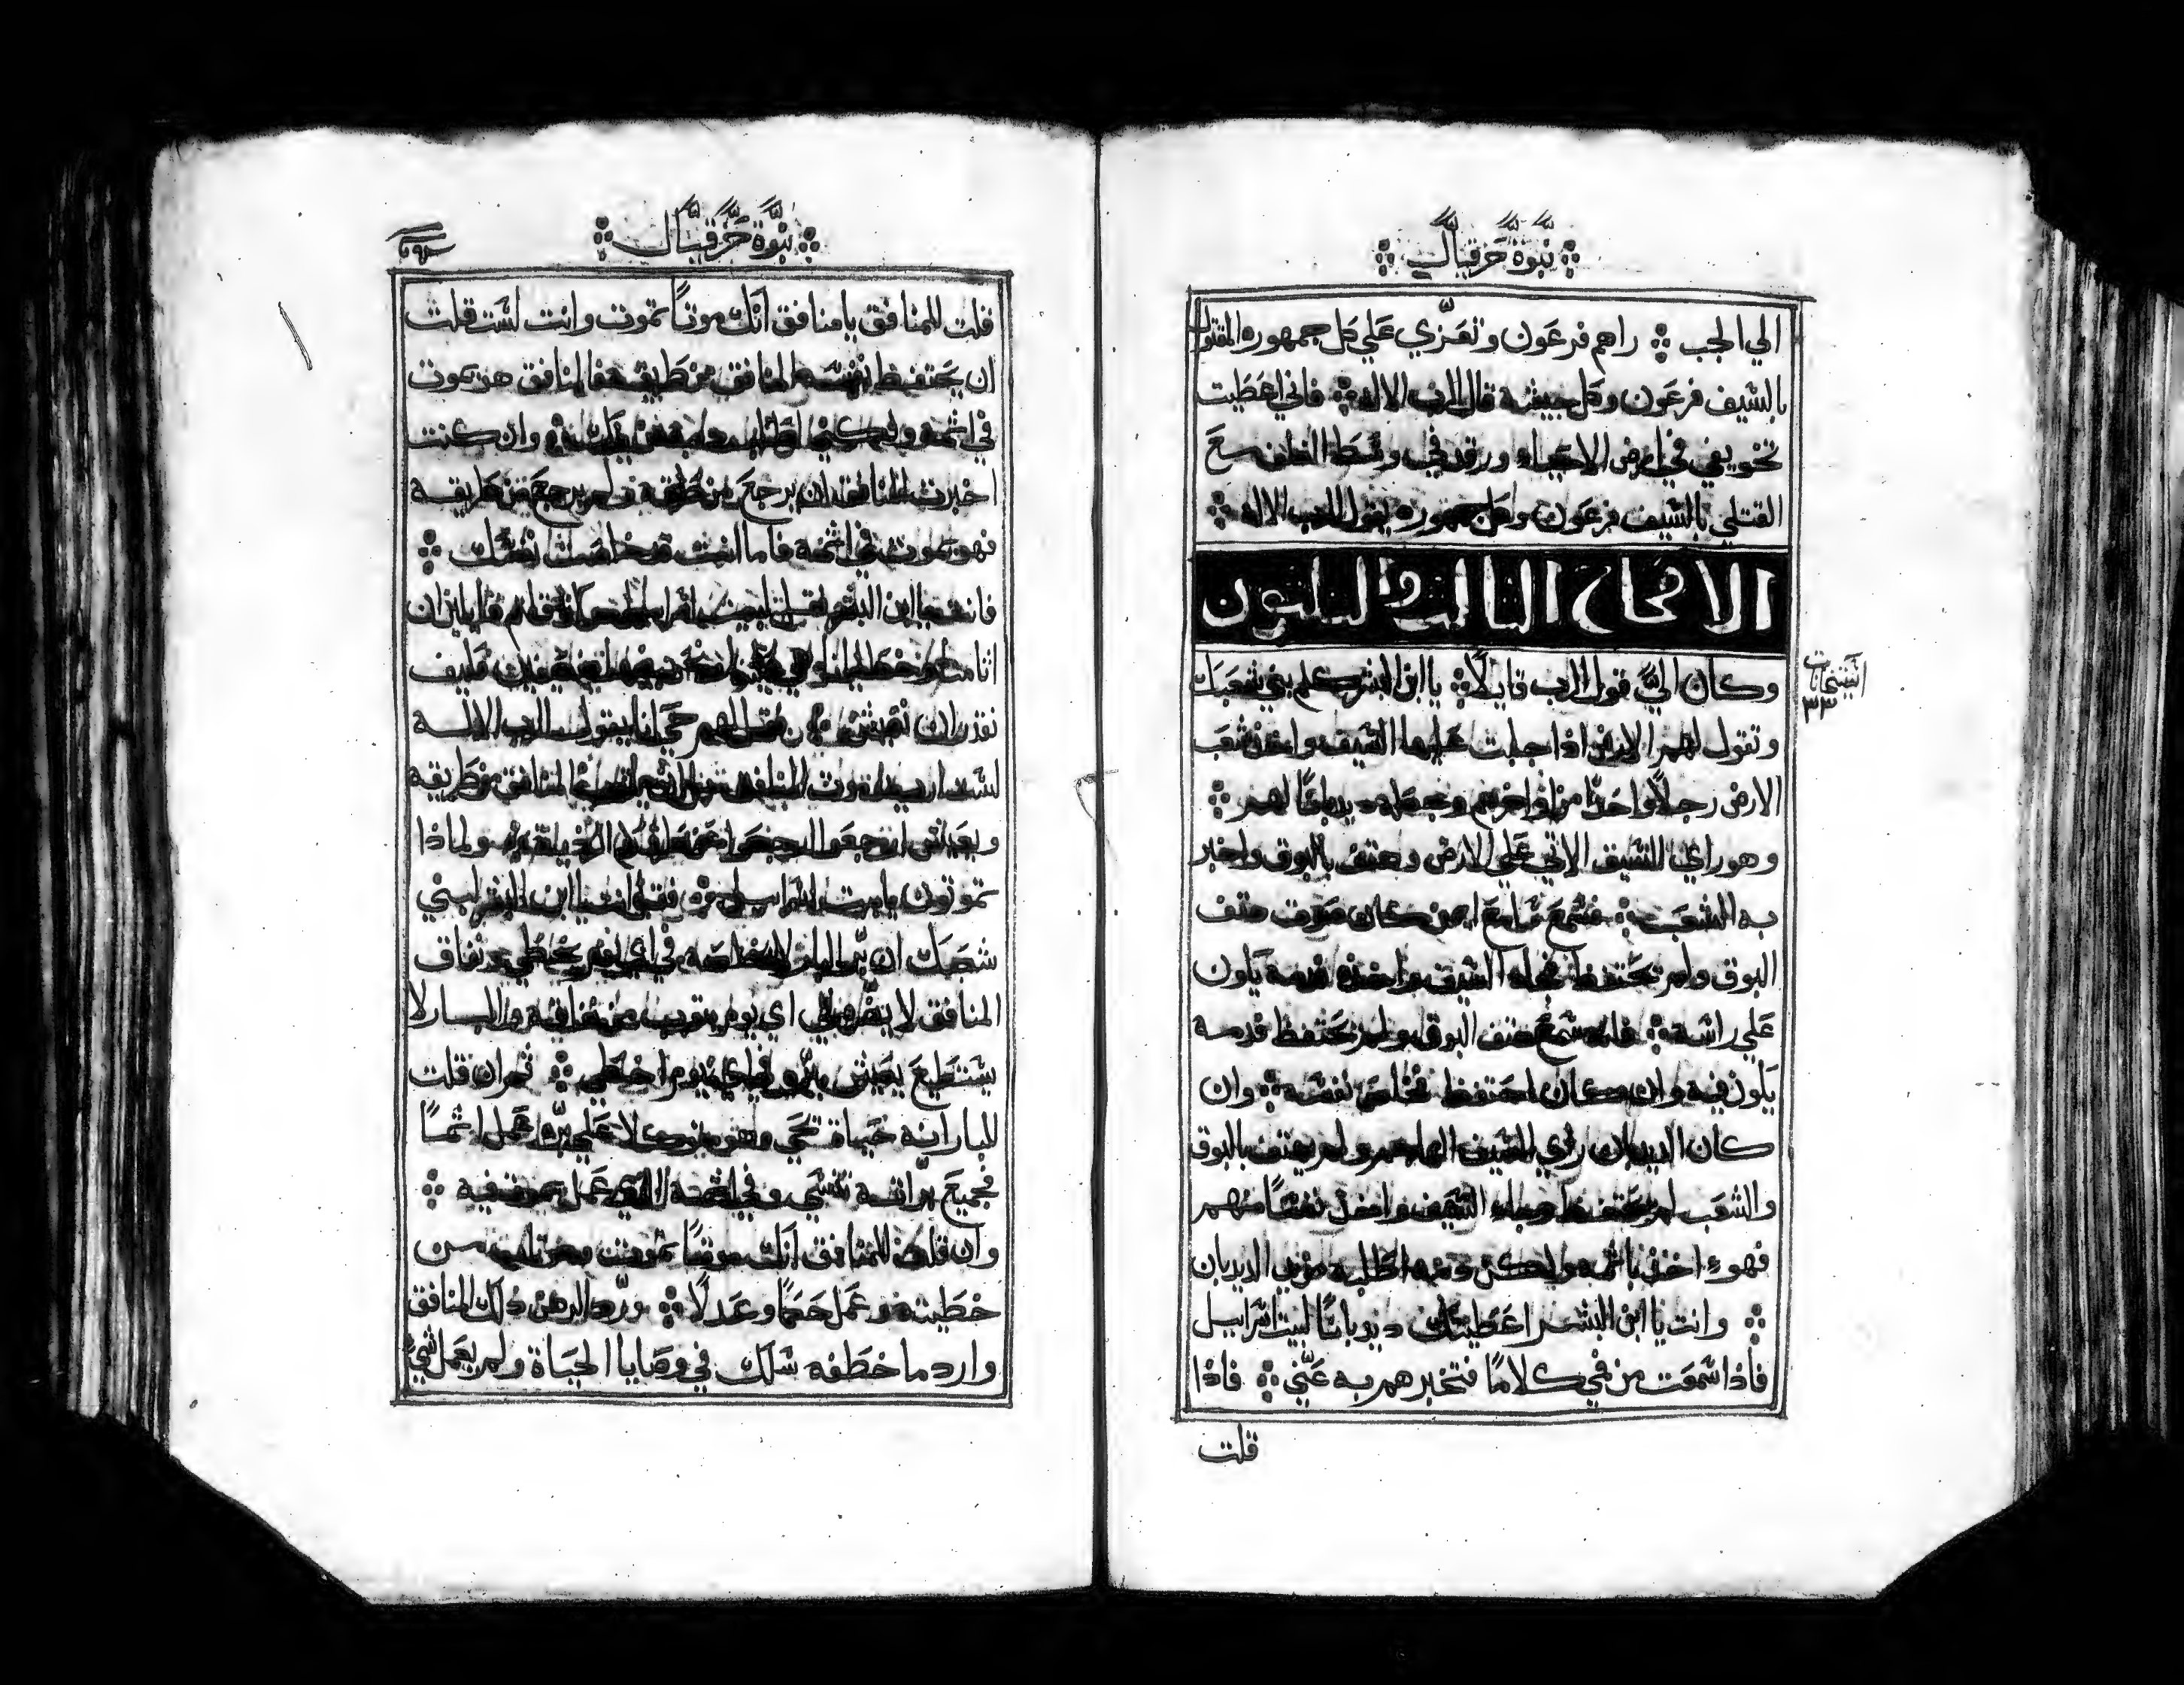 نبوة حزقيال
الي الجب ۞ راهم فرعون وتعزي علي كل جمهوره المقتول
بالسيف فرعون وكل جيشه قال الرب الاله ۞ فاني اعطيت
تخويفي في ارض الاحياء ورقد في وسط الغلف مع
القتلي بالسيف فرعون وكل جمهوره يقول الرب الاله ۞
الاصحاح الثالث والثلثون
وكان اليّ قول الرب قايلاً ۞ يا ابن البشر كلم بني شعبك
وتقول لهم الارض اذا جلبت عليها السيف واخذ شعب
الارض رجلاً واحداً من اواخرهم وجعله ديدباناً لهم ۞
وهو راي السيف الاتي علي الارض وهتف بالبوق واخبر
به الشعب ۞ فسمع سامع من كان صوت هتف
البوق ولم يحتفظ فجاء السيف واخذه فدمه يكون
علي راسه ۞ فانه سمع هتف البوق ولم يحتفظ فدمه
يكون فيه وان كان احتفظ فخلص نفسه ۞ وان
كان الديدبان راي السيف الهاجم ولم يهتف بالبوق
والشعب لم يحتفظ وجاء السيف واخذ نفساً منهم
فهوء اخذ باثمه ولكن دمه اطلبه من يد الديدبان
۞ وانت يا ابن البشر اعطيتك ديدباناً لبيت اسراييل
فاذا سمعت من فمي كلاماً فتخبرهم به عنّي ۞ فاذا
قلت
اصحاح
٣٣
نبوة حزقيال
قلت للمنافق يا منافق انك موتاً تموت وانت لست قلت
ان يحتفظ المنافق من طريقه فالمنافق هو يموت
في اثمه ودمه وان كنت
اخبرت المنافق ان يرجع من طريقه ولم يرجع من طريقه
فهو يموت في اثمه فاما انت قد خلصت نفسك ۞
فانت يا ابن البشر قل لبيت اسراييل قلتم قايلين ان
اثامنا وخطايانا فكيف
نقدر ان نعيش ۞ قل لهم حي انا يقول الرب الاله
لست اريد موت المنافق المنافق من طريقه
ويعيش ارجعوا ارجعوا عن طرقكم الرديه ولماذا
تموتون يا بيت اسراييل ۞ فقل انت يا ابن البشر لبني
شعبك ان برّ البار لا يخلصه في اي يوم يخطي ونفاق
المنافق لا يضره في اي يوم يتوب من نفاقه والبار لا
يستطيع يعيش ببره في اي يوم اخطي ۞ ثم ان قلت
للبار انه حياة تحي وهو متوكلاً علي برّه عمل اثماً
فجميع برّاته تنسي وفي اثمه الذي عمل يموت فيه ۞
وان قلت للمنافق انك موتاً تموت من
خطيته وعمل حكماً وعدلاً ۞ وردّ الرهن ذلك المنافق
وارد ما خطفه سلك في وصايا الحياة ولم يعمل شيء